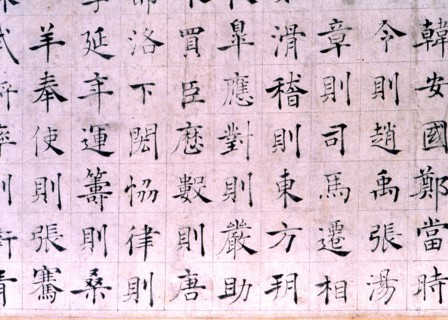 韓安國鄭當時
令則趙禹張湯
章則司馬遷相
滑稽則東方朔
皋應對則嚴助
買臣曆數則唐
洛下閎恊律則
延年運籌則桑
羊奉使則張騫